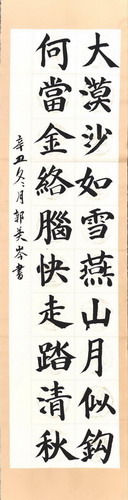 大漠沙如雪燕山月似鈎
何當金絡腦快走踏清秋
辛丑冬月郭美岑書